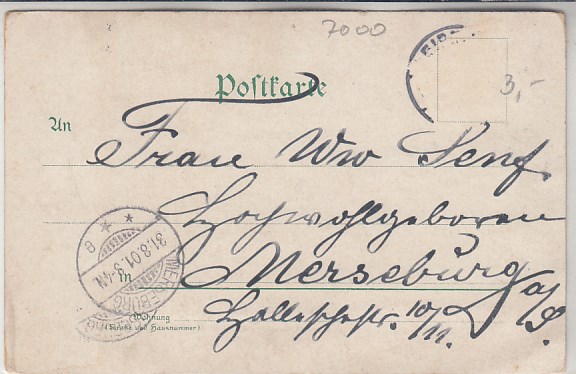 7000
3,-
Postkarte
An
Frau Ww Senf
Hochwohlgeboren
in Merseburg a/S.
Wohnung
(Straße und Hausnummer)
Halleschestr. 10/11.
MERSEBURG
31.8.01.3-4N.